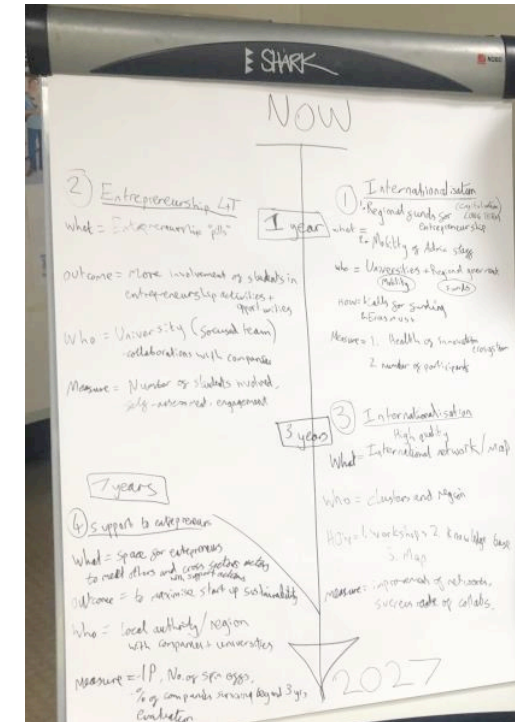 SHARK
NOBO
NOW
1 year
② Entrepreneurship
what = Entrepreneurship
outcome = More involvement of students in
entrepreneurship activities +
opportunities
Who = University (focused team)
collaborations with companies
Measure = Number of students involved,
self-assessment, engagement
① Internationalisation
1. Regional funds for
entrepreneurship
what =
2. Mobility of Admin staff
who = Universities + Regional government
Mobility
Funds
How = Calls for funding
Measure = 1. Health of innovation
ecosystem
2 number of participants
3 years
③ Internationalisation
High quality
What = International network / map
Who = clusters and region
How = 1. workshops 2. Knowledge base
3. Map
measure = of networks,
success rate of collabs.
7 years
④ Support to entrepreneurs
What = space for entrepreneurs
to meet others and cross sectors
outcome = to maximise start up sustainability
Who = local authority / region
with companies + universities
Measure = IP, No. of spin offs,
% of companies surviving beyond 3 yrs
evaluation
2027